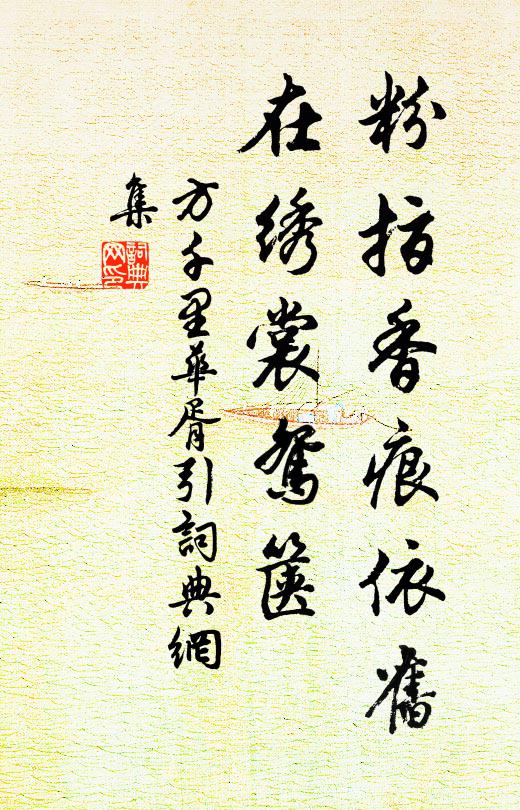 粉指香痕依舊
在绣裳鸳箧
方千里華胥引詞典網
集
詞典
网印